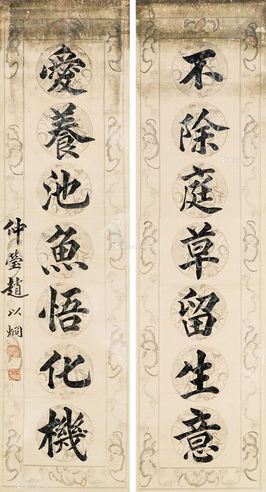 不除庭草留生意
愛養池魚悟化機
仲瑩趙以炯